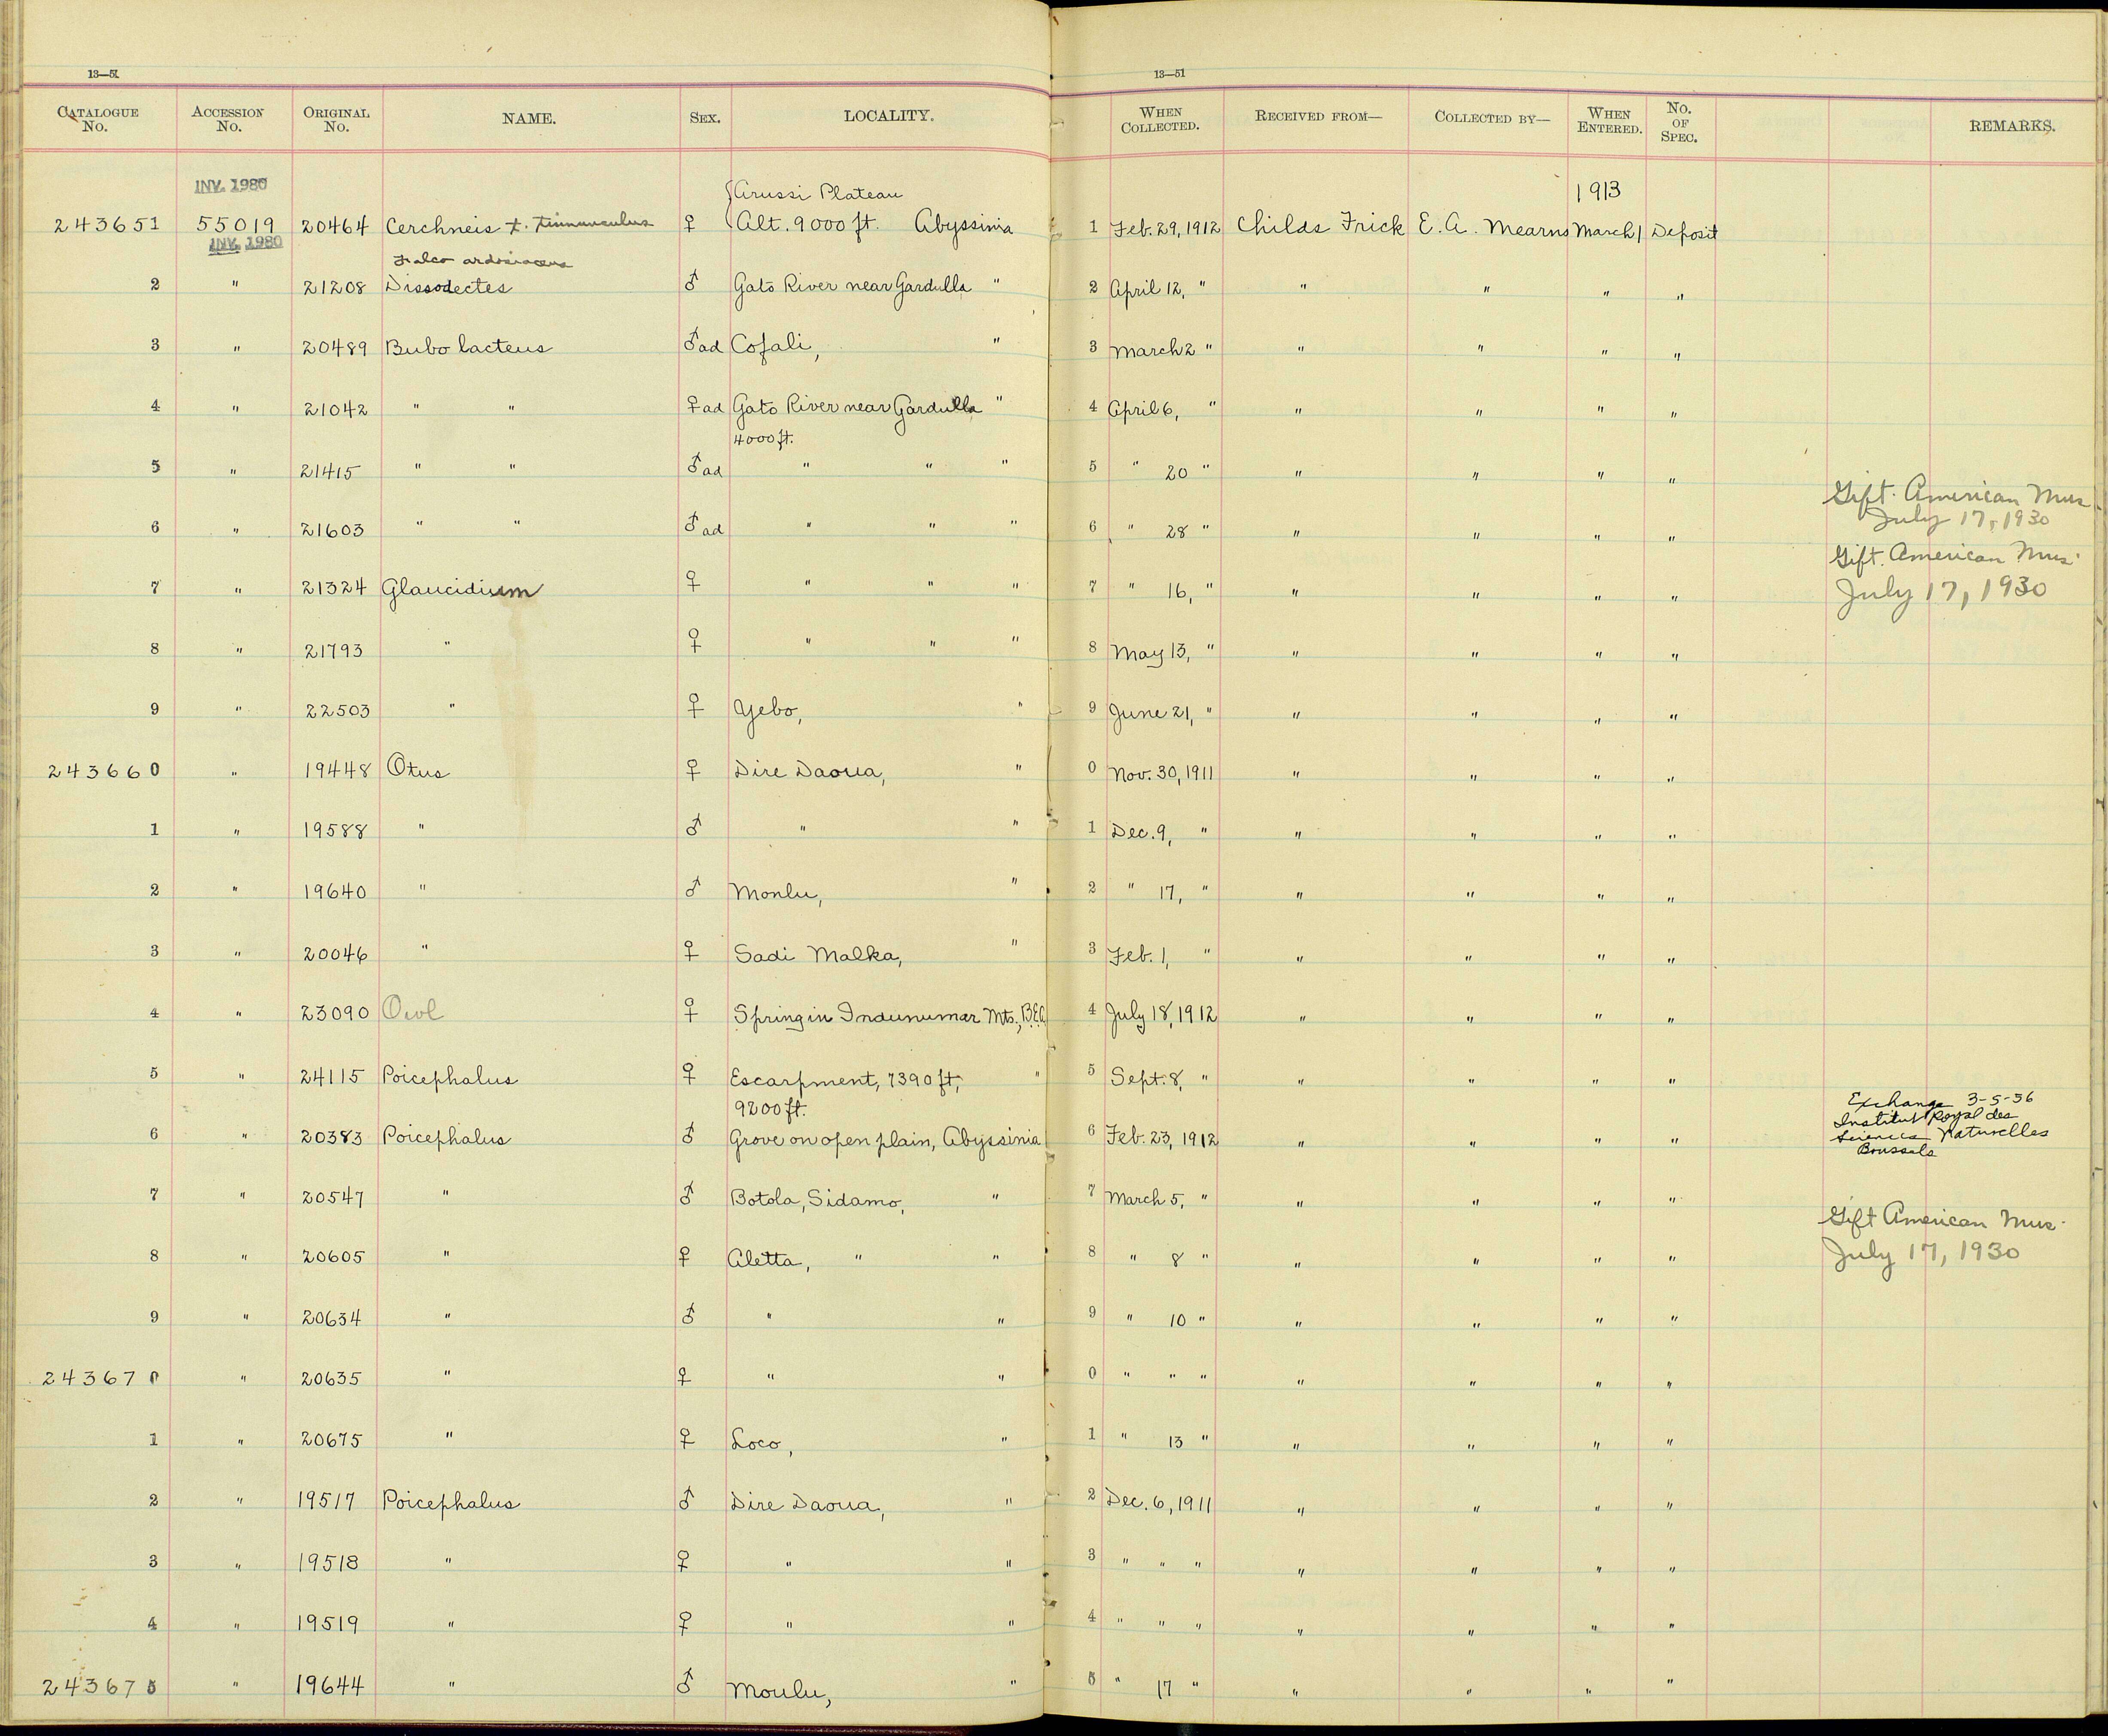 13—51
13—51
CATALOGUE No. ACCESSION No. ORIGINAL No. NAME. SEX. LOCALITY. WHEN COLLECTED. RECEIVED FROM— COLLECTED BY— WHEN ENTERED. No. OF SPEC. REMARKS.
INV. 1980 Arussi Plateau 1913
243651 55019 20464 Cerchneis t. tinnunculus ♀ Alt. 9000 ft. Abyssinia 1 Feb. 29, 1912 Childs Frick E. A. Mearns March 1 Deposit
INV. 1980
Falco ardosiaceus
2 " 21208 Dissodectes ♂ Gato River near Gardulla " 2 April 12, " " " " "
3 " 20489 Bubo lacteus ♂ad Cofali, " 3 March 2 " " " " "
4 " 21042 " " ♀ad Gato River near Gardulla " 4 April 6, " " " " "
4000 ft.
5 " 21415 " " ♂ad " " " 5 " 20 " " " " "
Gift. American Mus
July 17, 1930
6 " 21603 " " ♂ad " " " 6 " 28 " " " " "
Gift. American Mus.
July 17, 1930
7 " 21324 Glaucidium ♀ " " " 7 " 16, " " " " "
8 " 21793 " ♀ " " " 8 May 13, " " " " "
9 " 22503 " ♀ Yebo, " 9 June 21, " " " " "
243660 " 19448 Otus ♀ Dire Daoua, " 0 Nov. 30, 1911 " " " "
1 " 19588 " ♂ " " 1 Dec. 9, " " " " "
2 " 19640 " ♂ Monlu, " 2 " 17, " " " " "
3 " 20046 " ♀ Sadi Malka, " 3 Feb. 1, " " " " "
4 " 23090 Owl ♀ Spring in Indunumar Mts., B.E.A. 4 July 18, 1912 " " " "
5 " 24115 Poicephalus ♀ Escarpment, 7390 ft, " 5 Sept. 8, " " " " "
9200 ft.
Exchange 3-5-56
Institut Royal des
Sciences Naturelles
Brussels
6 " 20383 Poicephalus ♂ Grove on open plain, Abyssinia 6 Feb. 23, 1912 " " " "
7 " 20547 " ♂ Botola, Sidamo, " 7 March 5, " " " " "
Gift American Mus.
July 17, 1930
8 " 20605 " ♀ Aletta, " " 8 " 8 " " " " "
9 " 20634 " ♂ " " 9 " 10 " " " " "
243670 " 20635 " ♀ " " 0 " " " " " " "
1 " 20675 " ♀ Loco, " 1 " 13 " " " " "
2 " 19517 Poicephalus ♂ Dire Daoua, " 2 Dec. 6, 1911 " " " "
3 " 19518 " ♀ " " 3 " " " " " " "
4 " 19519 " ♀ " " 4 " " " " " " "
243675 " 19644 " ♂ Moulu, " 5 " 17 " " " " "